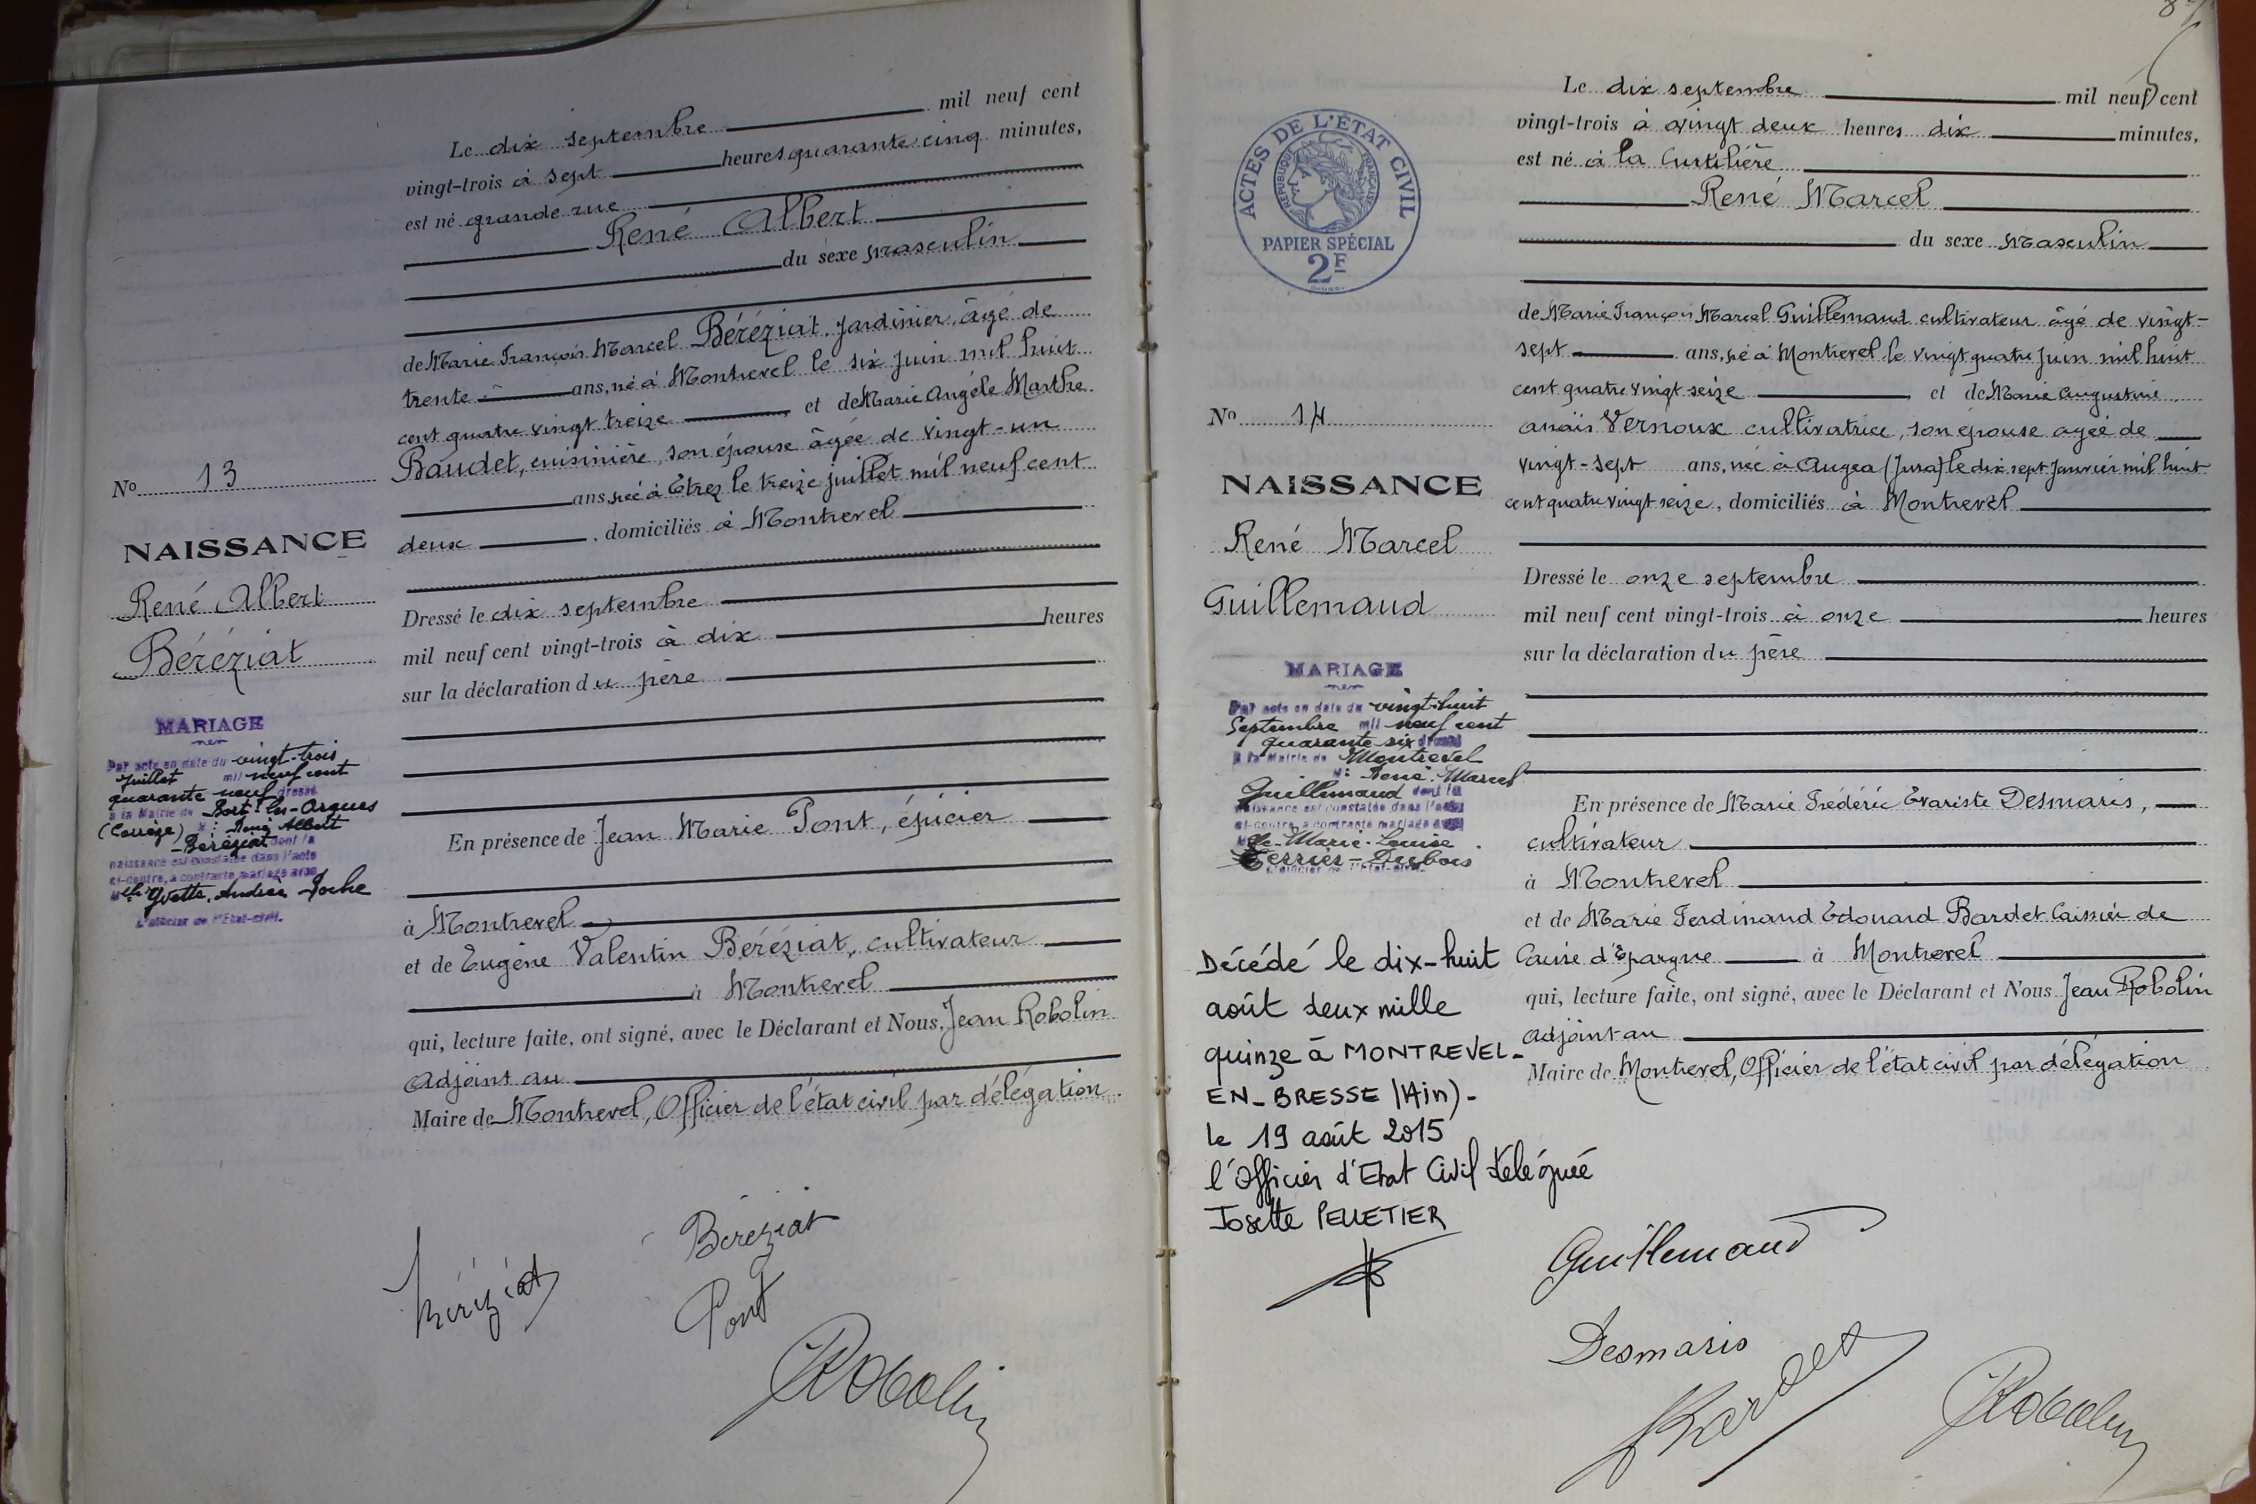 Le dix septembre mil neuf cent
vingt-trois à sept heures quarante cinq minutes,
est né grande rue
René Albert
du sexe masculin
de Marie François Marcel Béréziat, jardinier, âgé de
trente ans, né à Montrevel le six juin mil huit
cent quatre vingt treize et de Marie Angèle Marthe
Baudet, cuisinière, son épouse âgée de vingt-un
ans, née à Etrez le treize juillet mil neuf cent
deux, domiciliés à Montrevel
Dressé le dix septembre
mil neuf cent vingt-trois à dix heures
sur la déclaration du père
En présence de Jean Marie Pont, épicier
à Montrevel
et de Eugène Valentin Béréziat, cultivateur
à Montrevel
qui, lecture faite, ont signé, avec le Déclarant et Nous, Jean Robolin
Adjoint au
Maire de Montrevel, Officier de l'état civil par délégation
No 13
NAISSANCE
René Albert
Béréziat
MARIAGE
Par acte en date du vingt-trois
juillet mil neuf cent
quarante neuf dressé
à la Mairie de Bort-les-Orgues
(Corrèze) M: René Albert
Béréziat dont la
naissance est constatée dans l'acte
ci-contre, a contracté mariage avec
Melle Yvette, Andrée
L'officier de l'Etat-civil.
Béréziat
Béréziat
Pont
JRobolin
Le dix septembre mil neuf cent
vingt-trois à vingt deux heures dix minutes,
est né à la Curtilière
René Marcel
du sexe masculin
de Marie François Marcel Guillemaud cultivateur âgé de vingt-
sept ans, né à Montrevel le vingt quatre juin mil huit
cent quatre vingt seize et de Marie Augustine
anaïs Vernoux cultivatrice, son épouse agée de
vingt-sept ans, née à Augea (Jura) le dix sept janvier mil huit
cent quatre vingt seize, domiciliés à Montrevel
Dressé le onze septembre
mil neuf cent vingt-trois à onze heures
sur la déclaration du père
En présence de Marie Frédéric Evariste Desmaris,
cultivateur
à Montrevel
et de Marie Ferdinand Edouard Bardet Caissier de
Caisse d'Epargne à Montrevel
qui, lecture faite, ont signé, avec le Déclarant et Nous Jean Robolin
adjoint au
Maire de Montrevel, Officier de l'état civil par délégation
ACTES DE L'ÉTAT CIVIL
RÉPUBLIQUE FRANÇAISE
PAPIER SPÉCIAL
2F
No 14
NAISSANCE
René Marcel
Guillemaud
MARIAGE
Par acte en date du vingt-huit
Septembre mil neuf cent
quarante six dressé
à la Mairie de Montrevel
M: René Marcel
Guillemaud dont la
naissance est constatée dans l'acte
ci-contre, a contracté mariage avec
Melle Marie-Louise
Terrier-Dubois
L'officier de l'Etat-civil.
Décédé le dix-huit
août deux mille
quinze à MONTREVEL-
EN-BRESSE (Ain)-
le 19 août 2015
l'Officier d'Etat Civil délégué
Josette PELLETIER
Guillemaud
Desmaris
Bardet
JRobolin